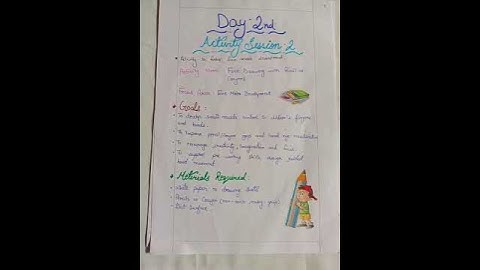 Day-2nd
Activity Session 2
Activity to
Activity Name : Free Drawing with Pencil or
Crayons
Focus Area : Fine Motor Development
Goals :
To develop muscle control in children's fingers
and hands.
To improve pencil/crayon grip and hand eye coordination
To encourage creativity, imagination and
To support pre-writing skills through guided
hand movement.
Materials Required :
White paper or drawing
Pencils or Crayon (non-toxic easy grip)
Flat Surface.